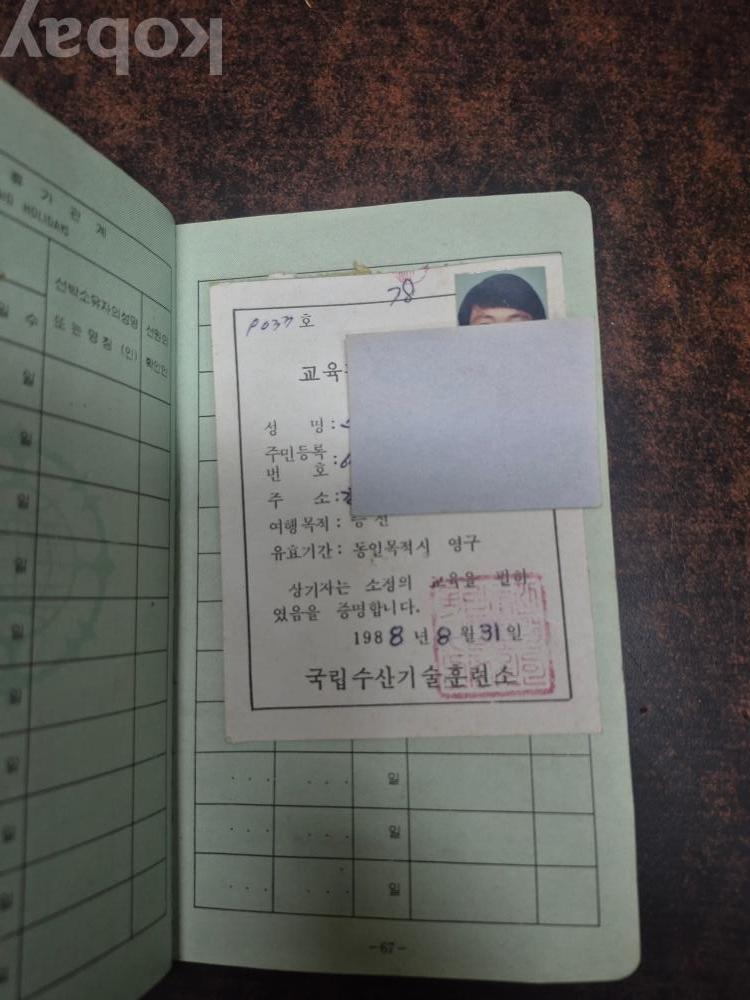 Kobay
유 급 휴 가 관 계
PAID HOLIDAYS
선박소유자의성명
또는 명칭 (인)
선원의
확인인
일 수
일
일
일
일
일
일
일
일
일
일
78
P037 호
교육
성 명 :
주민등록
번 호 :
주 소 :
여행목적 : 승선
유효기간 : 동일목적시 영구
상기자는 소정의 교육을 필하
였음을 증명합니다.
1988 년 8 월 31 일
국립수산기술훈련소
일
일
일
-67-